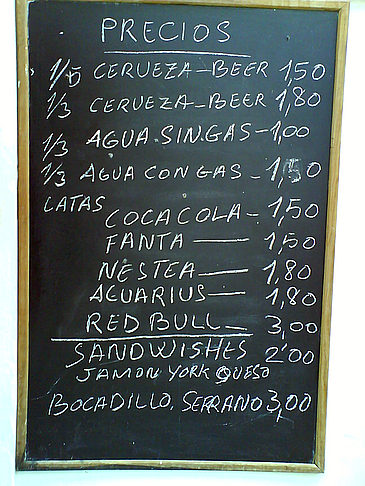 PRECIOS
1/5 CERUEZA-BEER 1,50
1/3 CERVEZA-BEER 1,80
1/3 AGUA.SINGAS-1,00
1/3 AGUA CON GAS - 1,50
LATAS
COCACOLA - 1,50
FANTA — 1,50
NESTEA — 1,80
ACUARIUS — 1,80
RED BULL — 3,00
SANDWISHES 2'00
JAMON YORK QUESO
BOCADILLO, SERRANO 3,00